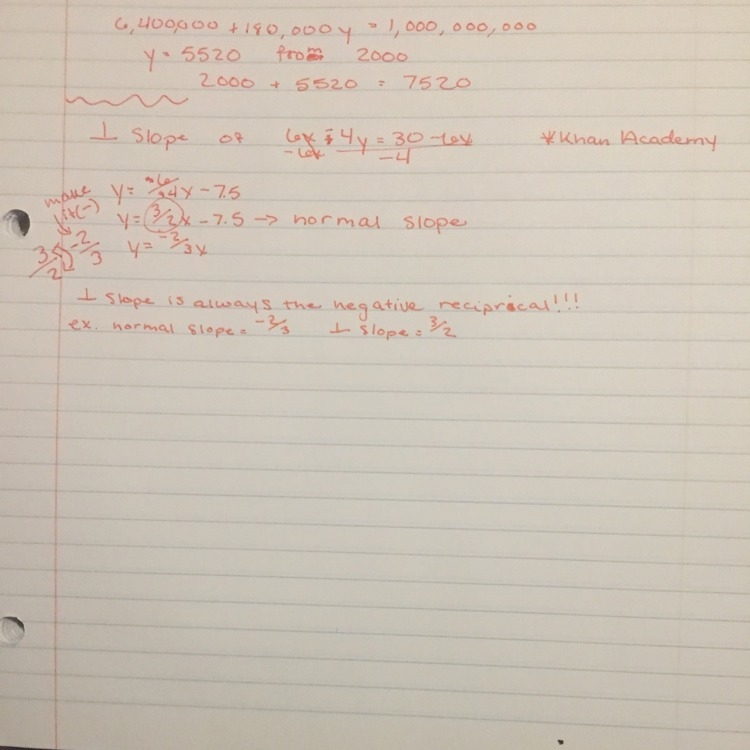 6,400,000 + 180,000y = 1,000,000,000
y = 5520 from 2000
2000 + 5520 = 7520
⊥ Slope of 6x - 4y = 30 - 6x *Khan Academy
-6x -4
y = -6/-4x - 7.5
make it (-)
y = 3/2x - 7.5 → normal slope
3/2 -2/3 y = -2/3x
⊥ slope is always the negative reciprical!!!
ex. normal slope = -2/3 ⊥ slope = 3/2